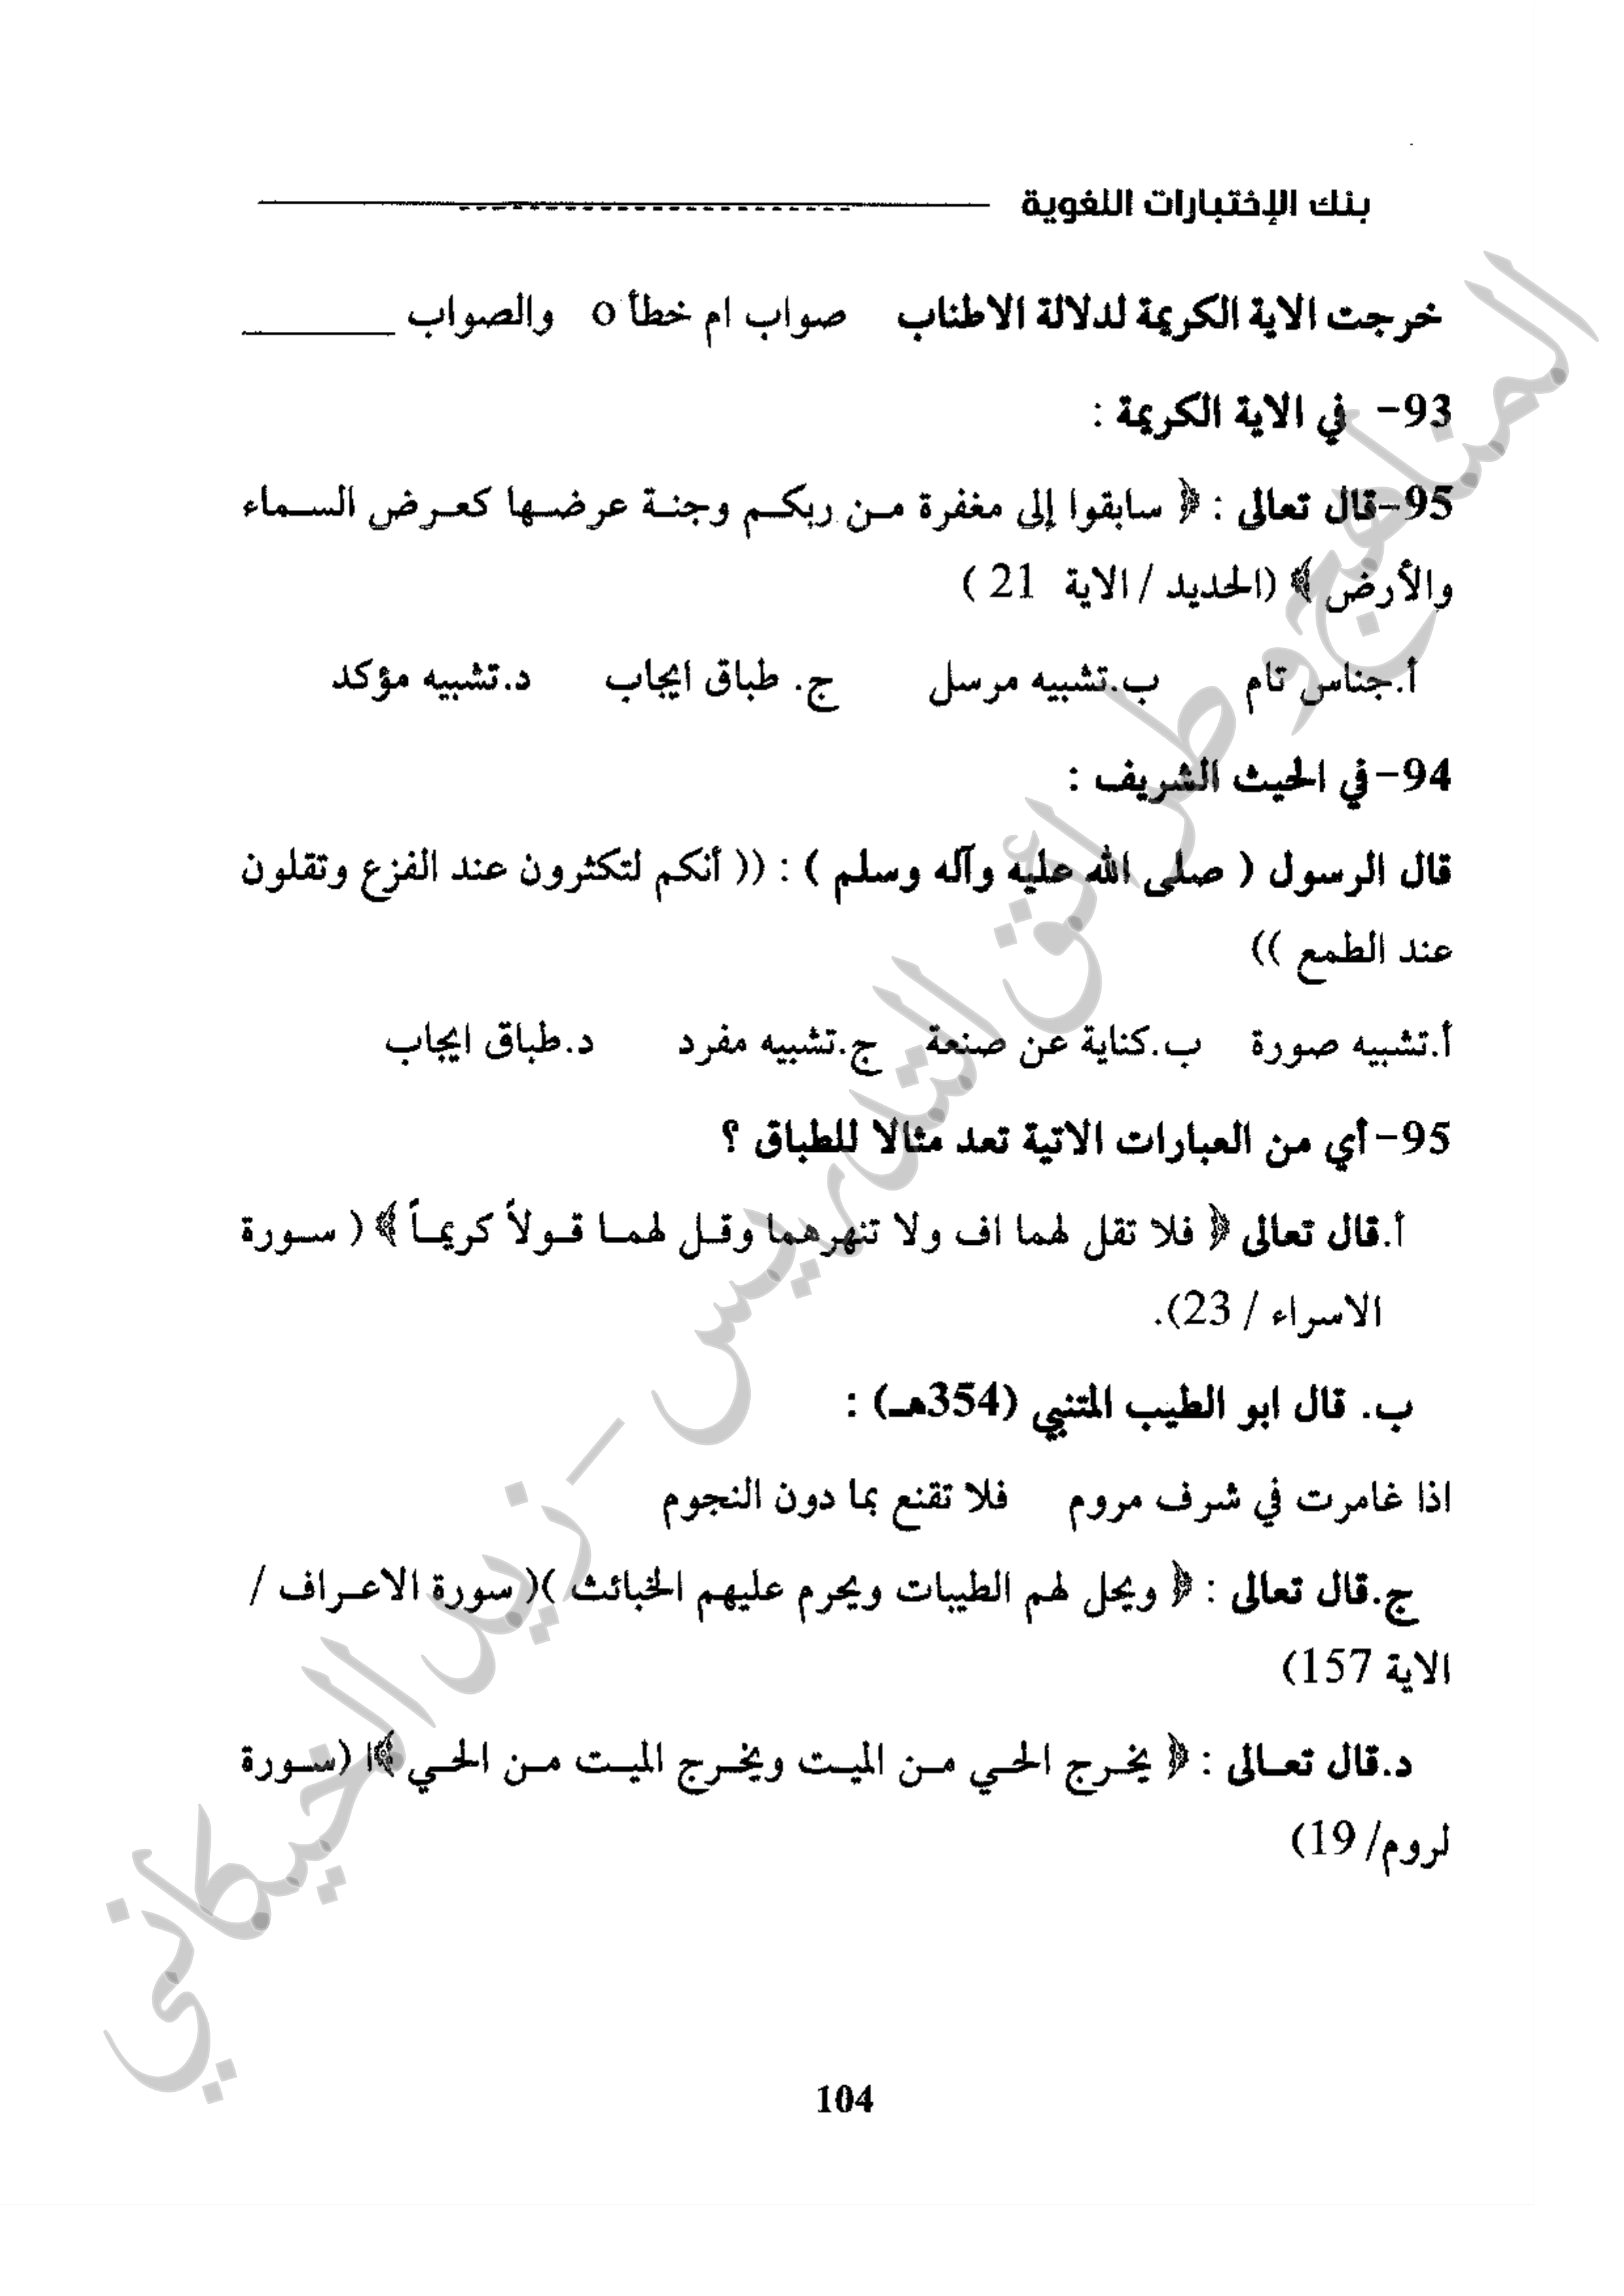 بنك الإختبارات اللغوية
خرجت الاية الكريمة لدلالة الاطناب صواب ام خطأ o والصواب ______
93- في الاية الكريمة :
95-قال تعالى : ﴿ سابقوا إلى مغفرة من ربكم وجنة عرضها كعرض السماء
والأرض ﴾ (الحديد / الاية 21 )
أ.جناس تام ب.تشبيه مرسل ج. طباق ايجاب د.تشبيه مؤكد
94-في الحيث الشريف :
قال الرسول ( صلى الله عليه وآله وسلم ) : (( أنكم لتكثرون عند الفزع وتقلون
عند الطمع ))
أ.تشبيه صورة ب.كناية عن صنعة ج.تشبيه مفرد د.طباق ايجاب
95-أي من العبارات الاتية تعد مثالا للطباق ؟
أ.قال تعالى ﴿ فلا تقل لهما اف ولا تنهرهما وقل لهما قولاً كريماً ﴾ ( سورة
الاسراء / 23).
ب. قال ابو الطيب المتنبي (354هـ) :
اذا غامرت في شرف مروم فلا تقنع بما دون النجوم
ج.قال تعالى : ﴿ ويحل لهم الطيبات ويحرم عليهم الخبائث )( سورة الاعراف /
الاية 157)
د.قال تعالى : ﴿ يخرج الحي من الميت ويخرج الميت من الحي ﴾ا (سورة
لروم/ 19)
104
المناهج وطرائق التدريس - زيد الخيكاني